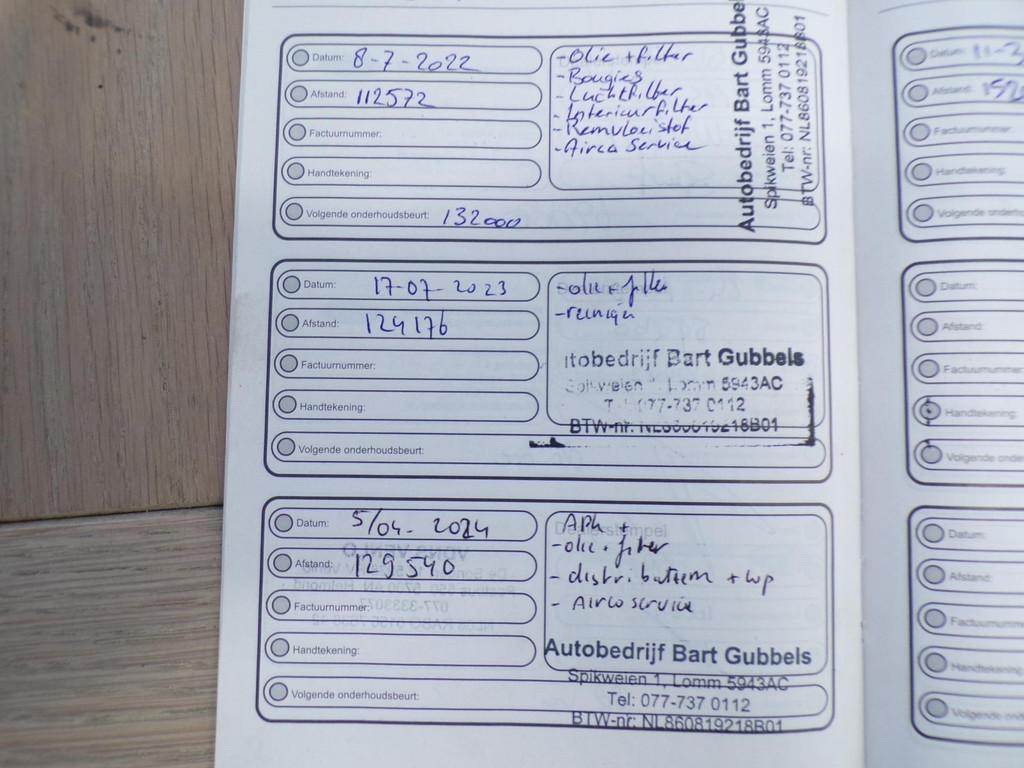 Datum: 8-7-2022
Afstand: 112572
Factuurnummer:
Handtekening:
Volgende onderhoudsbeurt: 132000
- Olie + filter
- Bougies
- Luchtfilter
- Interieurfilter
- Remvloeistof
- Airco Service
Autobedrijf Bart Gubbel
Spikweien 1, Lomm 5943AC
Tel: 077-737 0112
BTW-nr: NL860819218B01
Datum: 17-07-2023
Afstand: 124176
Factuurnummer:
Handtekening:
Volgende onderhoudsbeurt:
- olie + filter
- reinigen
tobedrijf Bart Gubbels
Spikweien 1, Lomm 5943AC
T 077-737 0112
BTW-nr: NL860819218B01
Datum: 5/04-2024
Afstand: 129540
Factuurnummer:
Handtekening:
Volgende onderhoudsbeurt:
- APK +
- olie + filter
- distributieriem + wp
- Airco service
Autobedrijf Bart Gubbels
Spikweien 1, Lomm 5943AC
Tel: 077-737 0112
BTW-nr: NL860819218B01
Datum: 11-3
Afstand: 152
Factuurnummer:
Handtekening:
Volgende onderh
Datum:
Afstand:
Factuurnummer
Handtekening:
Volgende onde
Datum:
Afstand:
Factuurnumm
Handtekening
Volgende ond